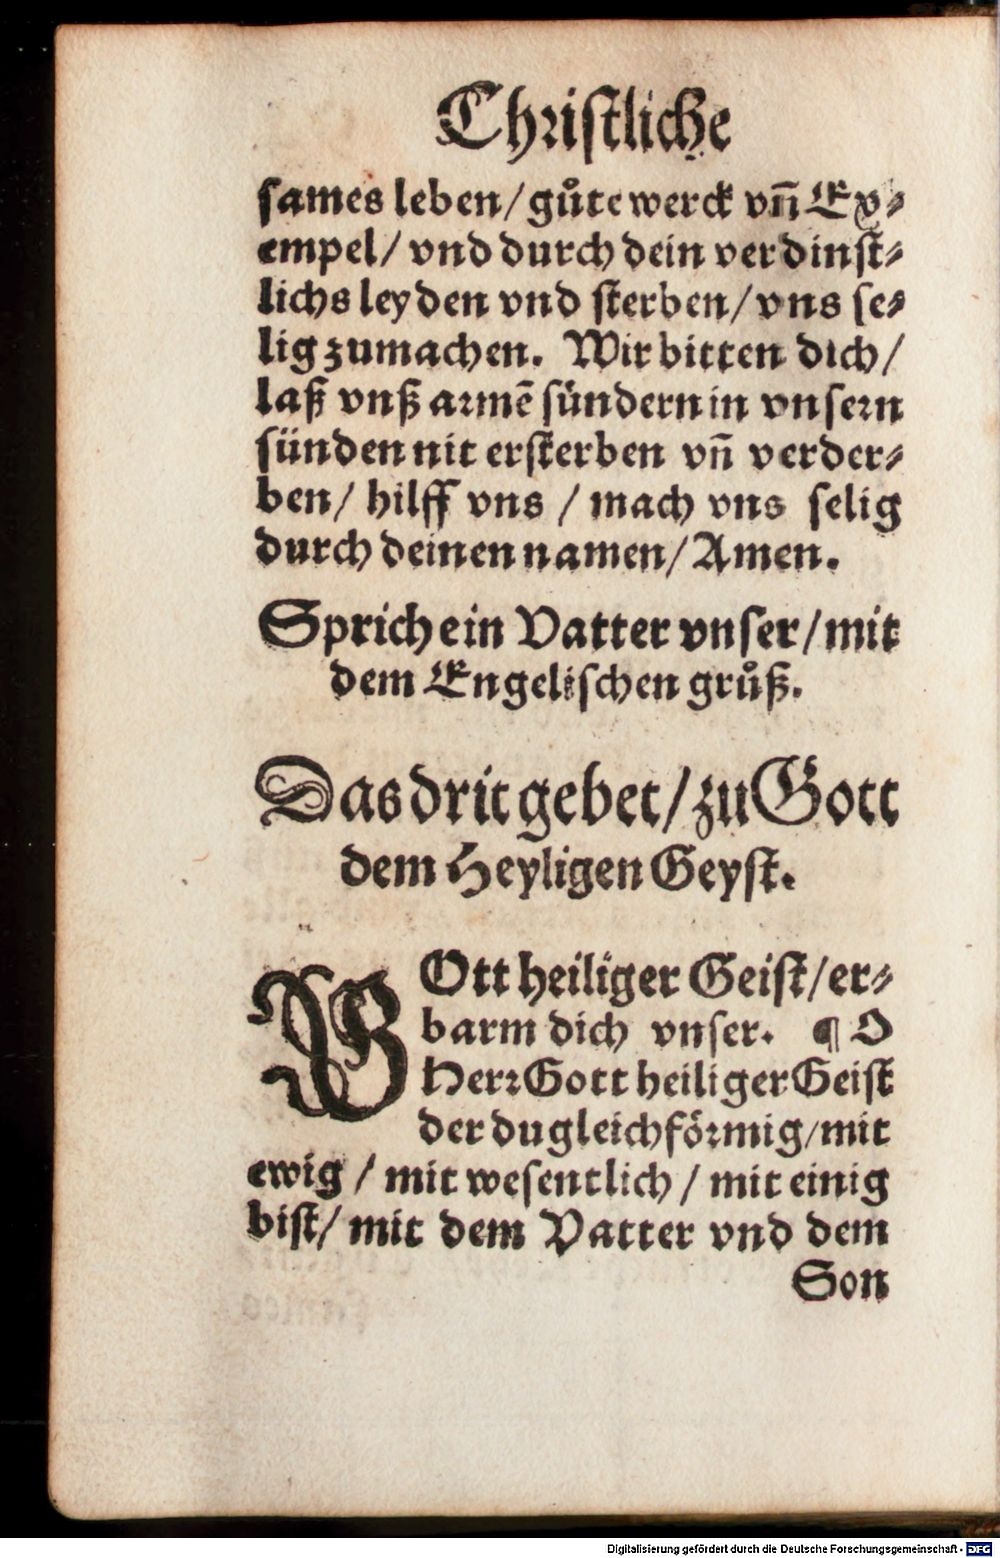 Christliche
sames leben/ gůte werck vñ Ex⸗
empel/ vnd durch dein verdinst⸗
lichs leyden vnd sterben/ vns se⸗
lig zumachen. Wir bitten dich/
laß vnß armē sündern in vnsern
sünden nit ersterben vñ verder⸗
ben/ hilff vns / mach vns selig
durch deinen namen/ Amen.
Sprich ein Vatter vnser/ mit
dem Engelischen grůß.
Das drit gebet/ zu Gott
dem Heyligen Geyst.
GOtt heiliger Geist/ er⸗
barm dich vnser. ¶ O
Herr Gott heiliger Geist
der du gleichförmig/ mit
ewig / mit wesentlich / mit einig
bist/ mit dem Vatter vnd dem
Son
Digitalisierung gefördert durch die Deutsche Forschungsgemeinschaft - DFG